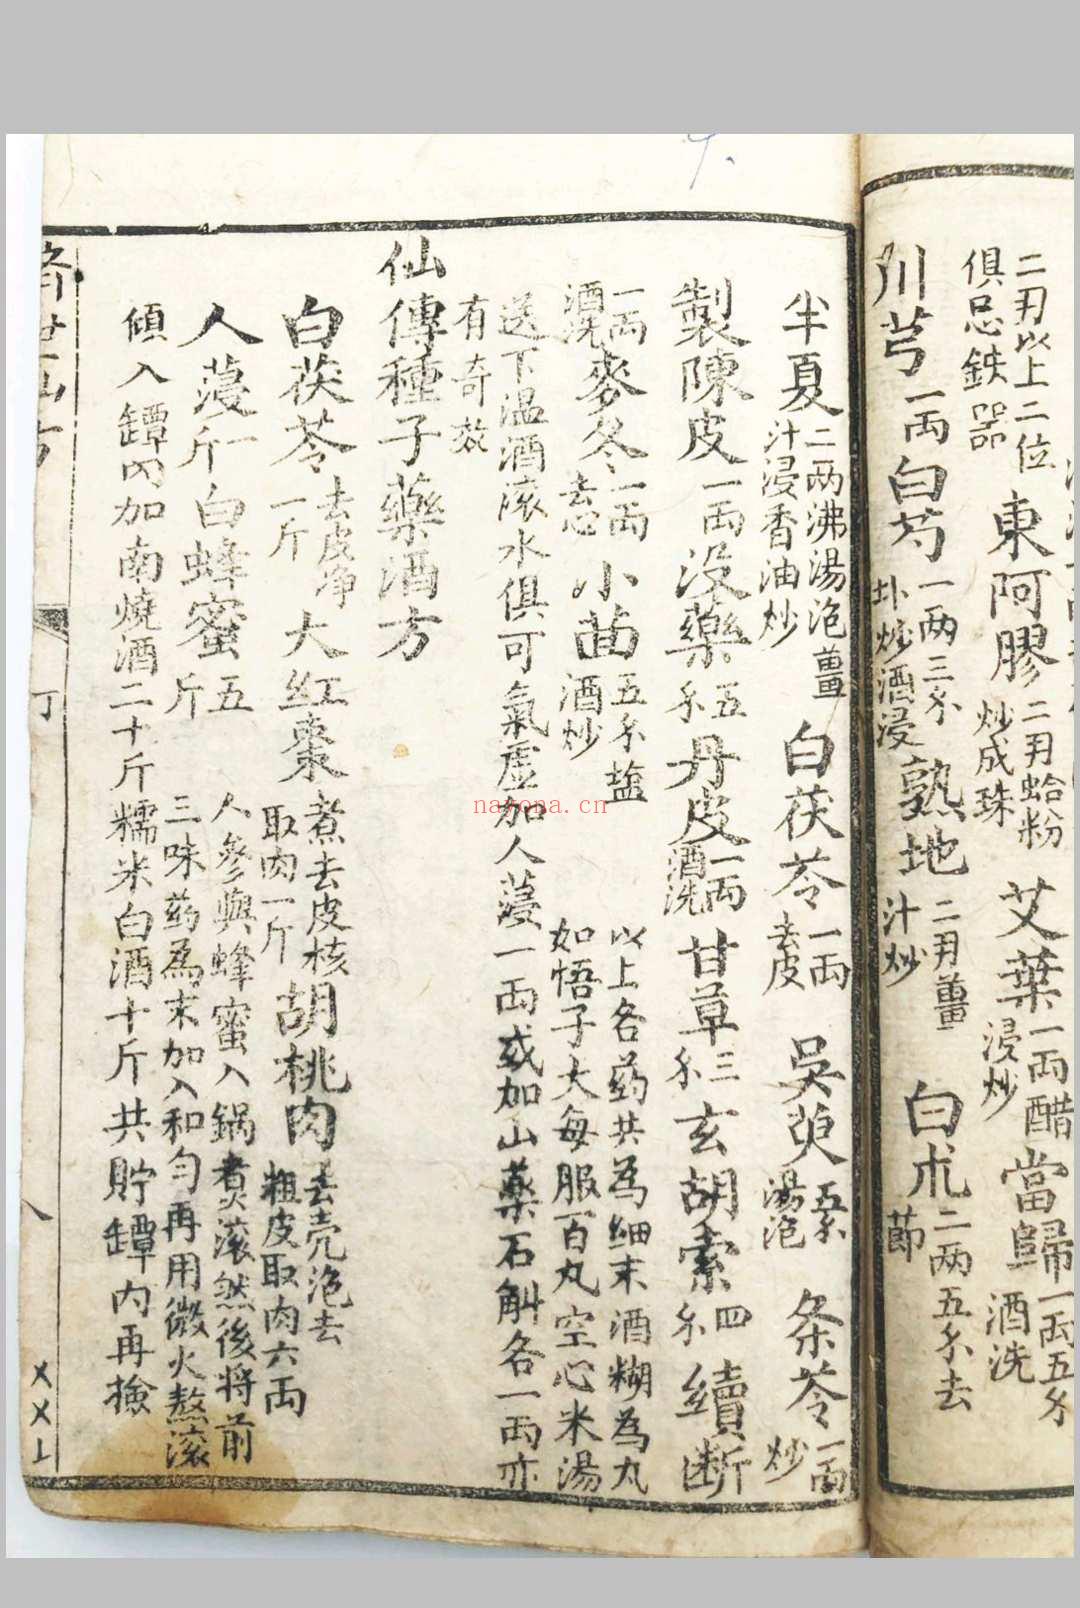 二刄以上二位
俱忌鉄器
東阿膠
二刄蛤粉
炒成珠
艾葉
一両醋
浸炒
當歸
一両五分
酒洗
川芎
一両
白芍
一两三分
炒酒浸
熟地
二刄薑
汁炒
白朮
二两五分去
節
半夏
二两沸湯泡薑
汁浸香油炒
白茯苓
一両
去皮
吳萸
五分
湯泡
条苓
一両
炒
製陳皮
一両
没藥
五
分
丹皮
一両
酒洗
甘草
三
分
玄胡索
四
分
續断
一両
酒洗
麥冬
一両
去心
小茴
五分塩
酒炒
以上各药共為细末酒糊為丸
如悟子大每服百丸空心米湯
送下温酒滚水俱可氣虚加人蓡一両或加山藥石斛各一両亦
有奇效
仙傳種子藥酒方
白茯苓
去皮净
一斤
大红棗
煮去皮核
取肉一斤
胡桃肉
去壳泡去
粗皮取肉六両
人蓡
一
斤
白蜂蜜
五
斤
人參與蜂蜜入鍋煮滚然後将前
三味药為末加入和匀再用微火熬滚
傾入罈内加南燒酒二十斤糯米白酒十斤共貯罈内再撿
済世仙方
丁
八
nayona.cn